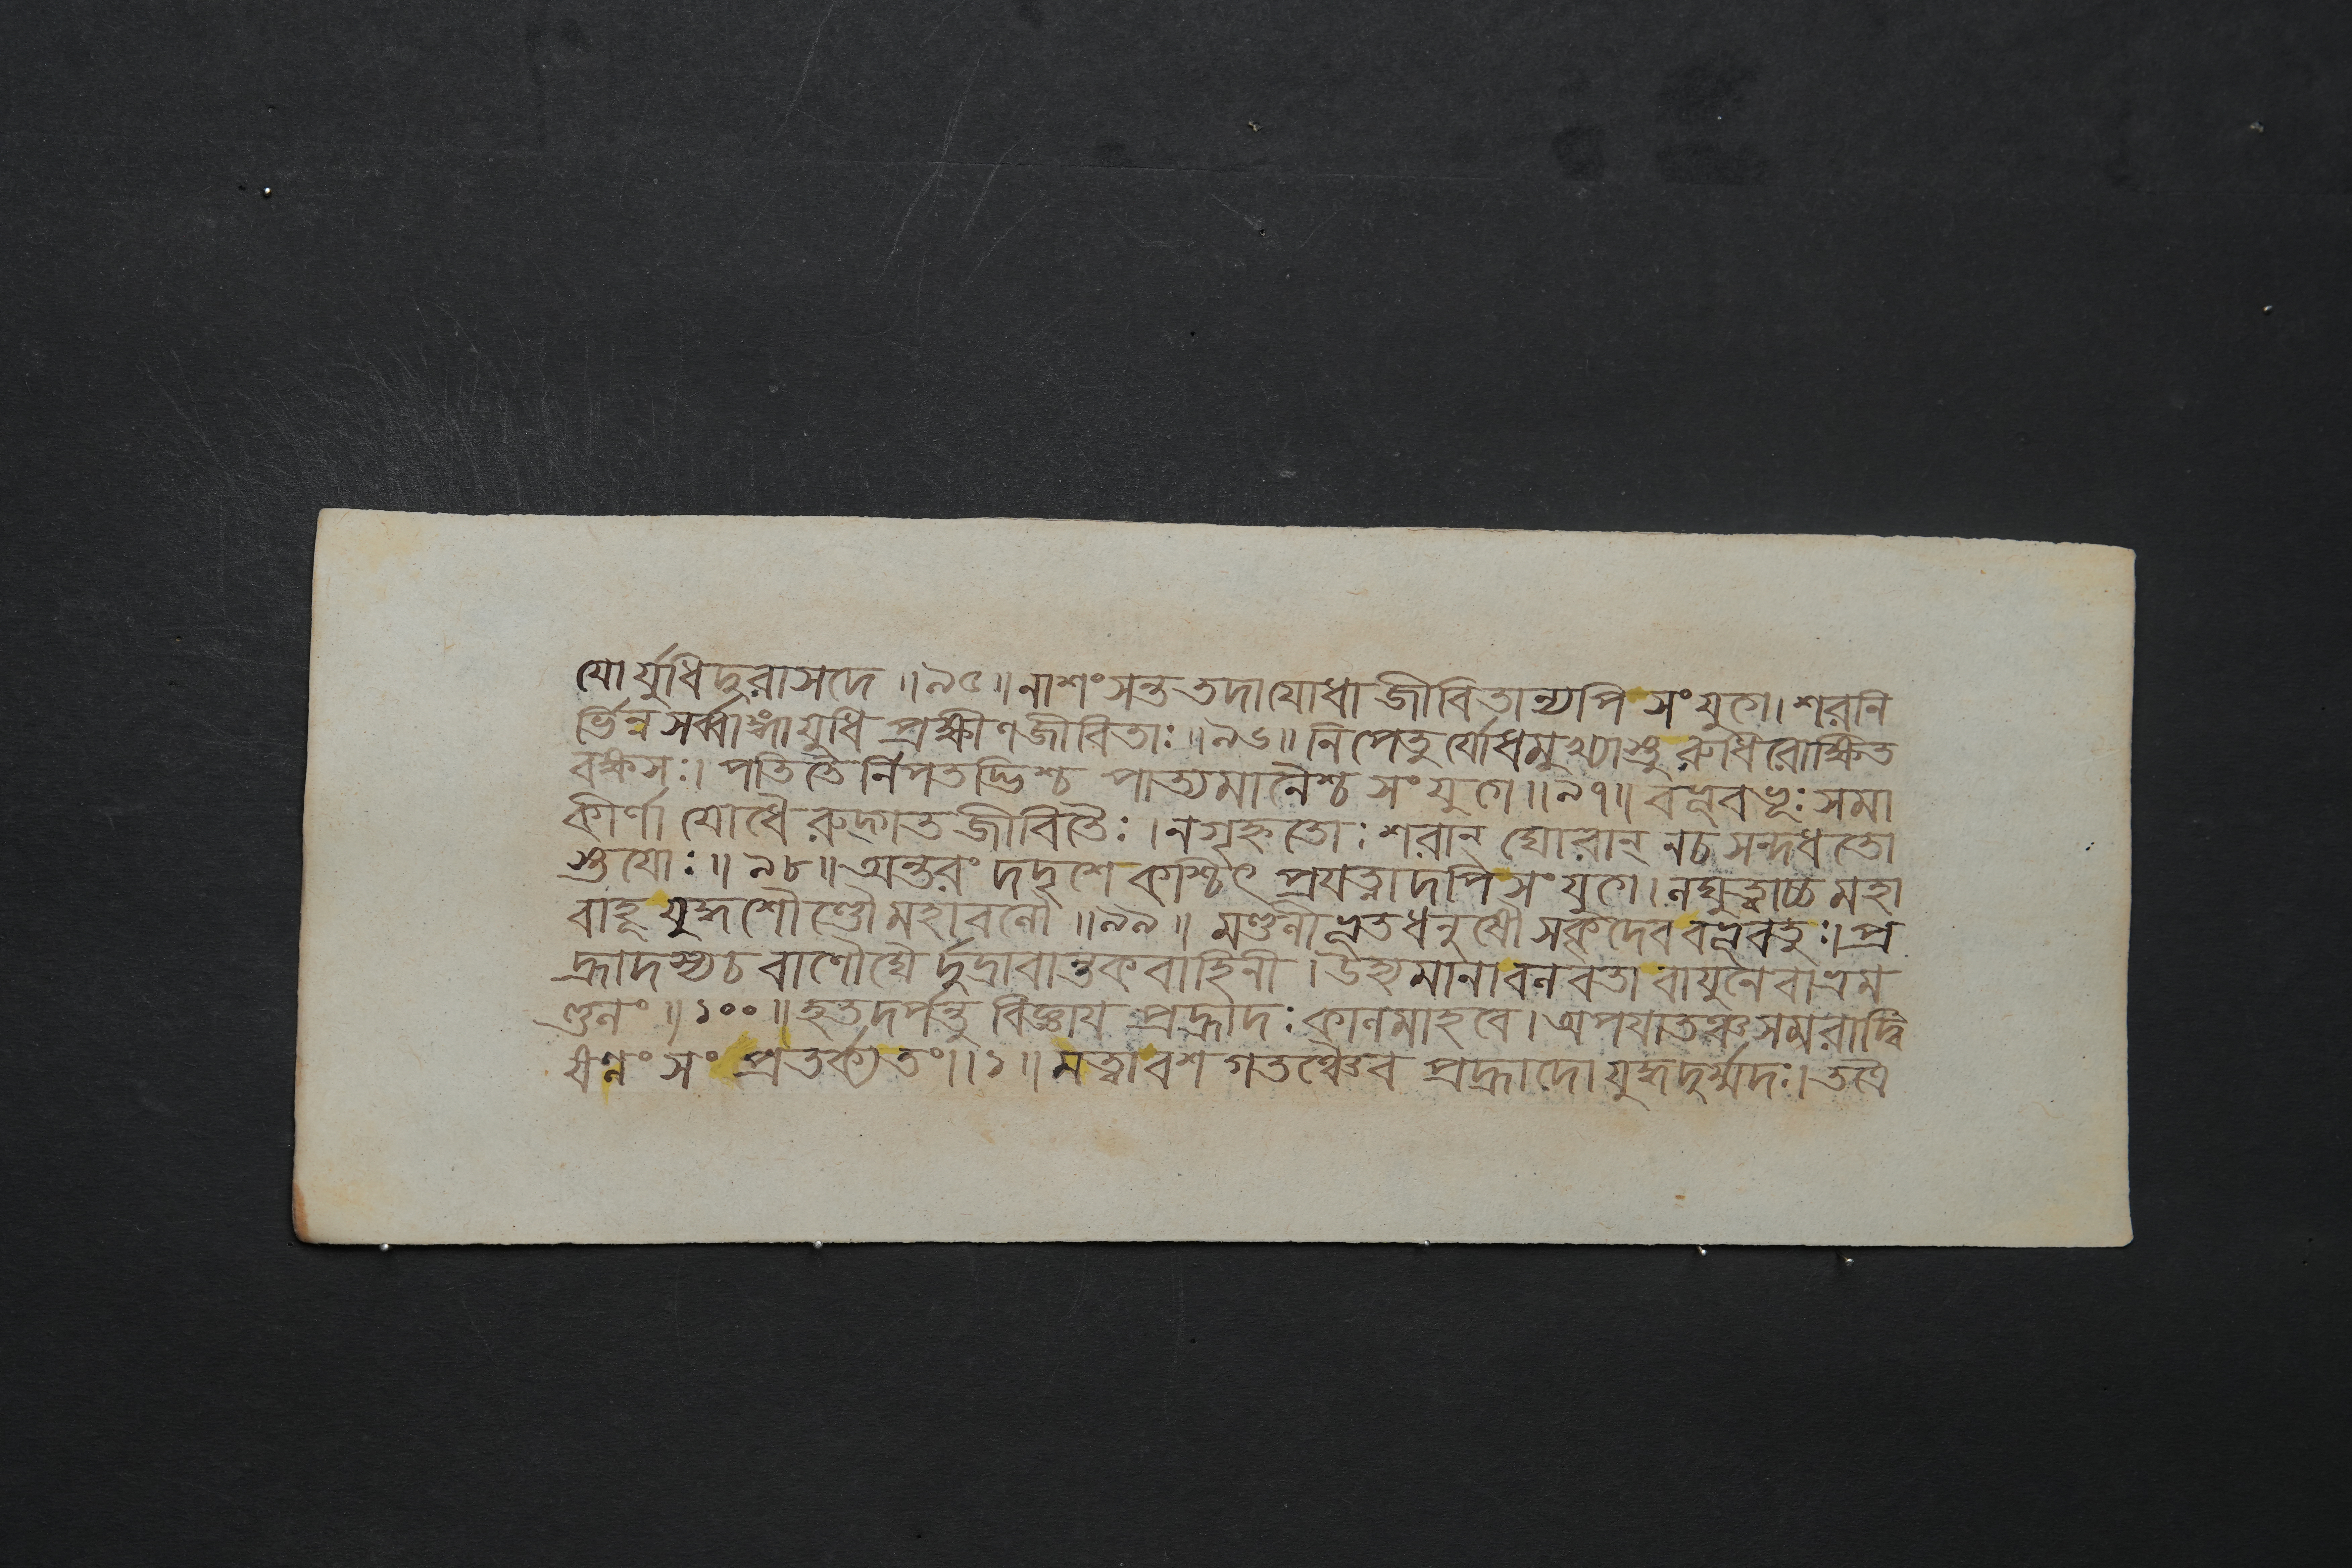 যোর্যুধিদুরাসদে ॥৯৫॥ নাশংসন্ততদাযোধা জীবিতান্যপি সংযুগে। শরনি
র্ভিন্নসর্ব্বাঙ্গাযুধি প্রক্ষীণজীবিতাঃ ॥৯৬॥ নিপেতুর্যোধমুখ্যাস্তু রুধিরোক্ষিত
বক্ষসঃ। পতিতৈর্নিপতদ্ভিশ্চ পাত্যমানৈশ্চ সংযুগে ॥৯৭॥ বভূবভূঃ সমা
কীর্ণা যোধৈরুদ্গতজীবিতৈঃ। নগৃহ্নতোঃ শরান্ ঘোরান্ নচসন্দধতো
স্তযোঃ ॥৯৮॥ অন্তরং দদৃশে কশ্চিৎ প্রযত্নাদপি সংযুগে। লঘুত্বাচ্চ মহা
বাহূ যুদ্ধশৌণ্ডৌ মহাবলৌ ॥৯৯॥ মণ্ডলীভূতধনুষৌ সকৃদেব বভূবতুঃ। প্র
হ্লাদস্যচ বাণৌঘৈর্দুদ্রাবান্তকবাহিনী। উহ্যমানাবলবতা বাযুনেবাভ্রম
ণ্ডলং ॥১০০॥ হৃতদর্পন্তু বিজ্ঞায প্রহ্লাদঃ কালমাহবে। অপযাতঞ্চ সমরাদ্বি
ষণ্নং সংপ্রতর্ক্য তং ॥১॥ মত্বাবশগতঞ্চৈব প্রহ্লাদো যুদ্ধদুর্ম্মদঃ। তত্রৈ